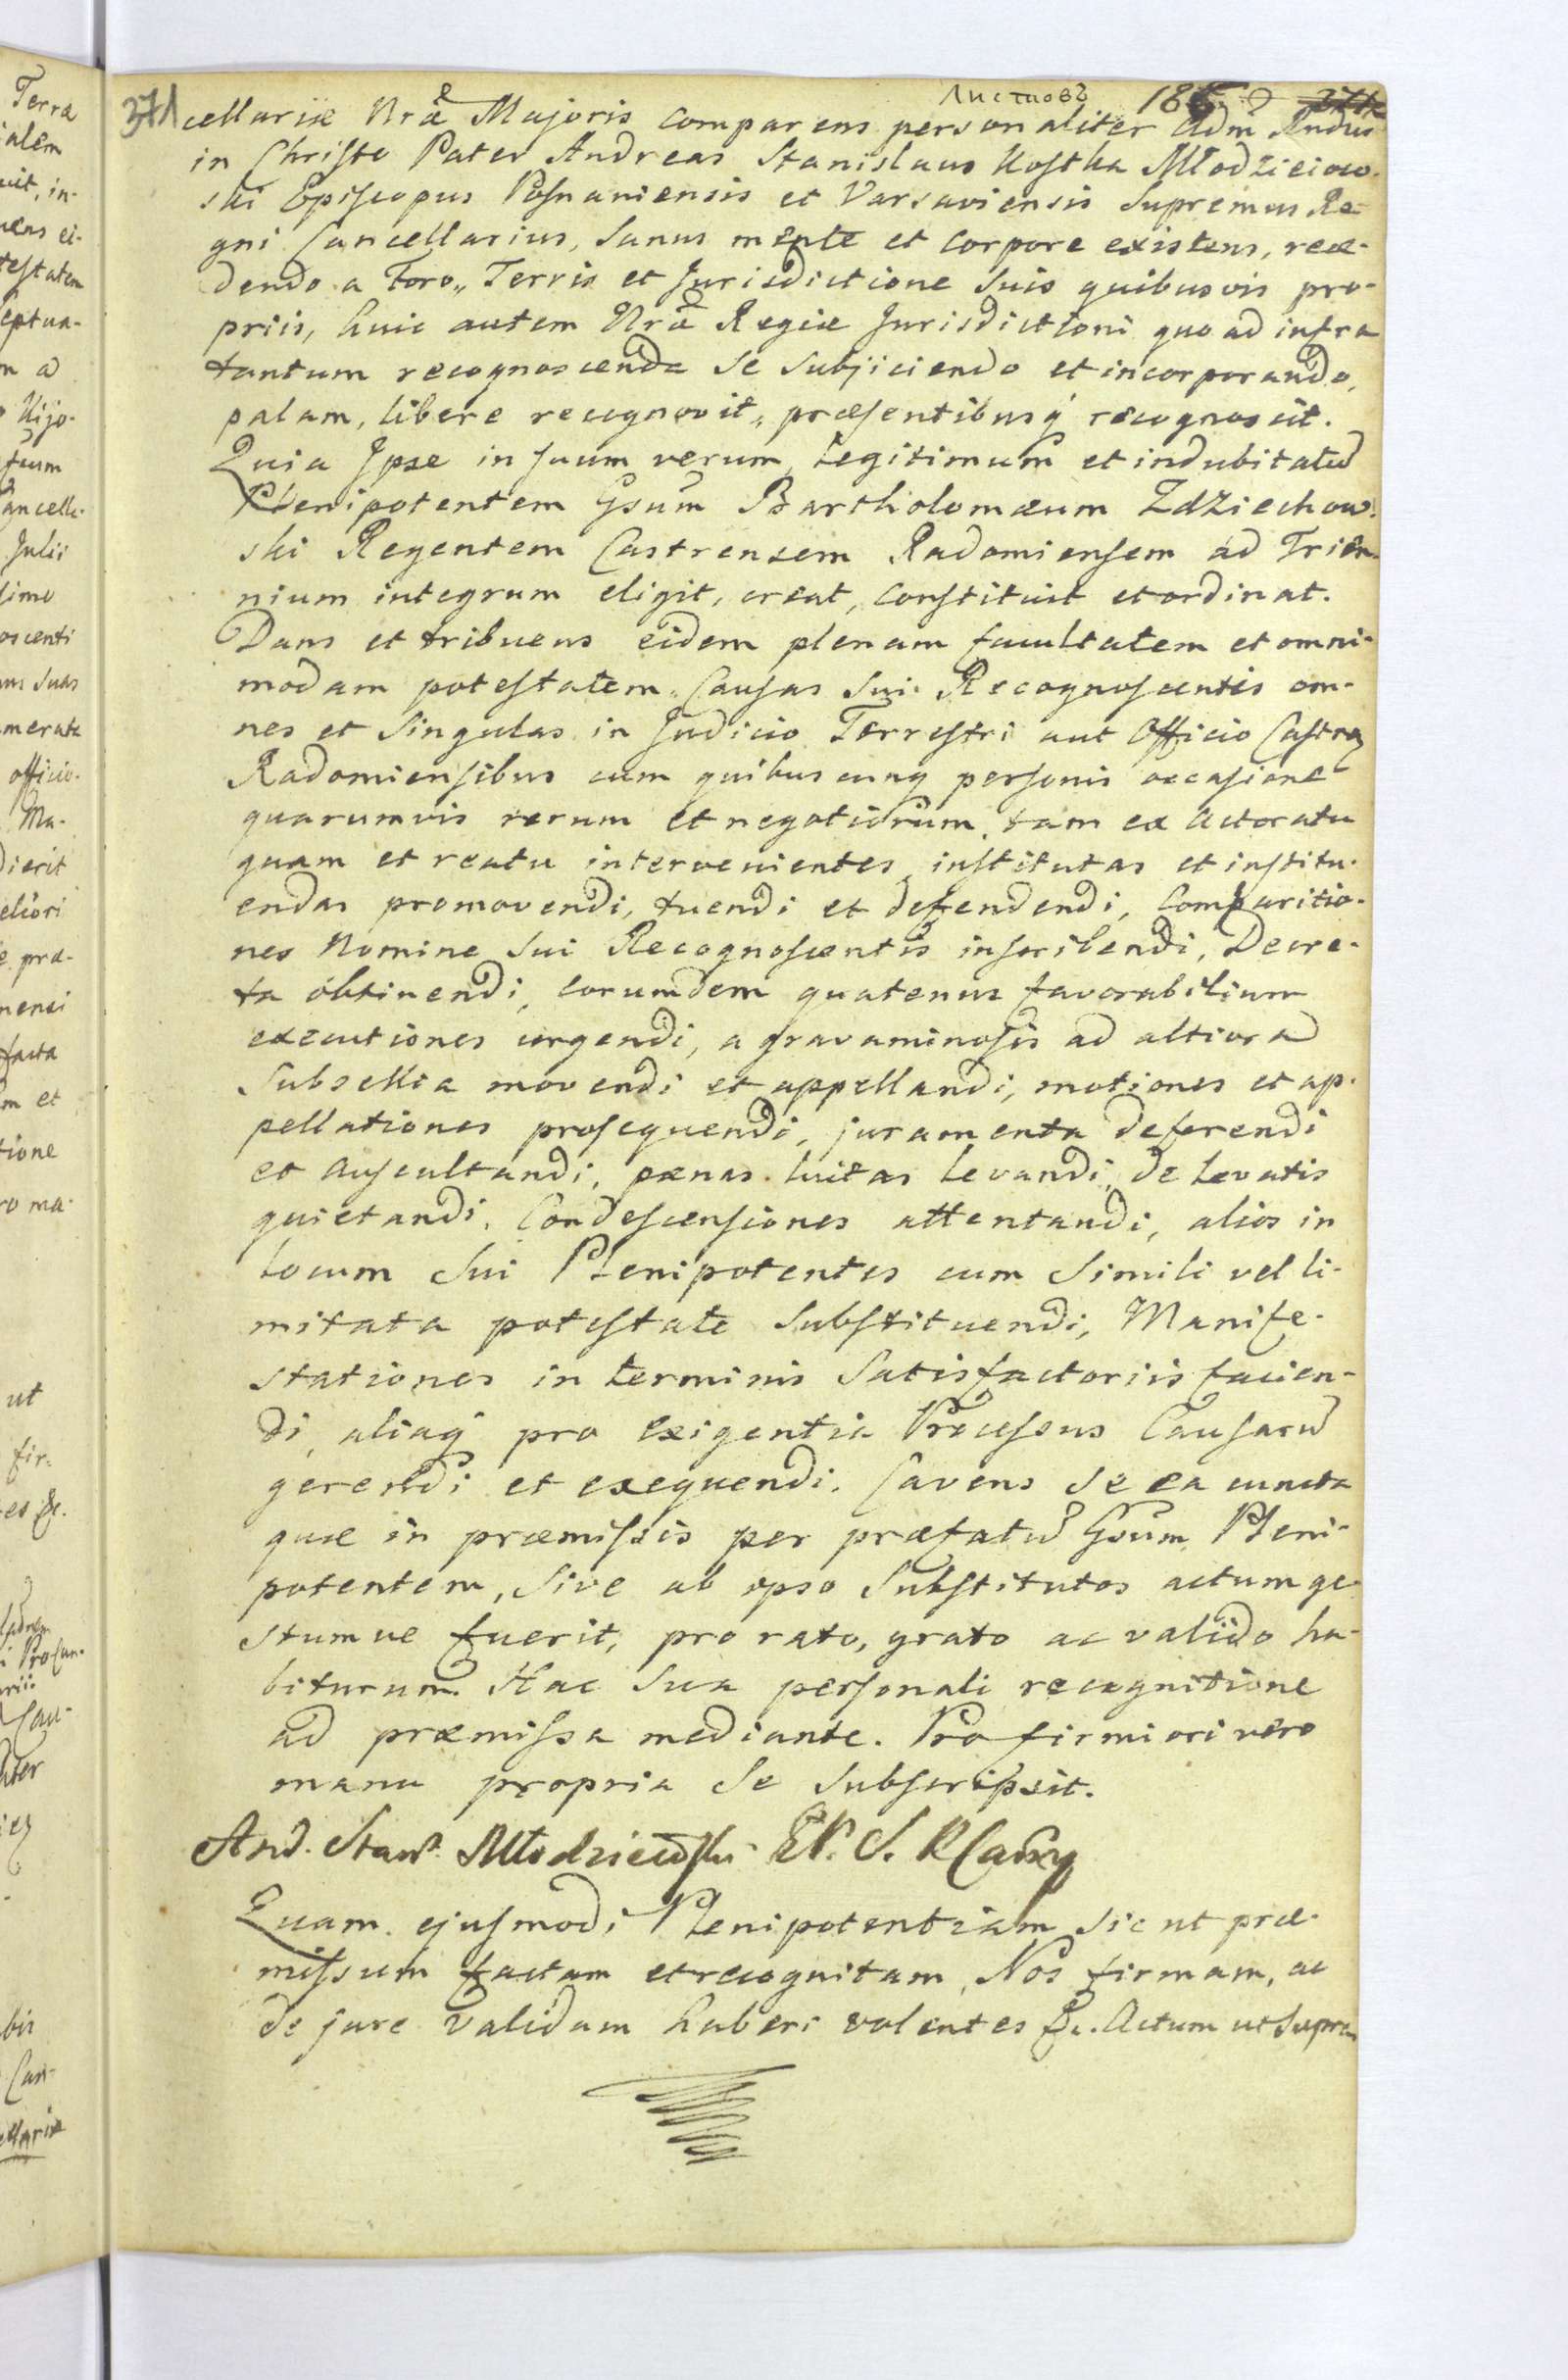 Листновъ 186
371 cellariæ Nræ Majoris comparens personaliter Adm Rndus
in Christo Pater Andreas Stanislaus Kostka Młodzieiow-
ski Episcopus Posnaniensis et Varsaviensis Supremus Re-
gni Cancellarius, Sanus mente et Corpore existens, rece-
dendo a Foro, Terris et Jurisdictione Suis quibusvis pro-
priis, huic autem Nræ Regiæ Jurisdictioni quo ad infra
tantum recognoscenda se subjiciendo et incorporando,
palam, libere recognovit, præsentibusq́ recognoscit.
Quia Ipse in suum verum, Legitimum et indubitatū
Plenipotentem Gsum Bartholomæum Zdziechow-
ski Regentem Castrensem Radomiensem ad Trien-
nium integrum eligit, creat, Constituit et ordinat.
Dans et tribuens eidem plenam facultatem et omni-
modam potestatem, Causas Sui Recognoscentis om-
nes et Singulas in Judicio Terrestri aut Officio Castren
Radomiensibus cum quibuscunq personis occasione
quarumvis rerum et negotiorum, tam ex Actoratu
quam et reatu intervenientes institutas et institu-
endas promovendi, tuendi et defendendi, Comparitio-
nes Nomine Sui Recognoscentis inscribendi, Decre-
ta obtinendi, eorumdem quatenus favorabilium
executiones urgendi, a gravaminosis ad altiora
Subsellia movendi et appellandi, motiones et ap-
pellationes prosequendi, juramenta deferendi
et auscultandi, pænas luitas Levandi, de Levatis
quietandi, Condescensiones attentandi, alios in
Locum Sui Plenipotentes cum Simili vel li-
mitata potestate Substituendi, Manife-
stationes in terminis Satisfactoriis facien-
di, aliaq́ pro exigentia Processus Causarū
gerendi et exequendi. Cavens Se ea cuncta
quæ in præmissis per præfatū Gsum Pleni-
potentem, Sive ab ipso Substitutos actum ge-
stumve fuerit, pro rato, grato ac valido ha-
biturum. Hac Sua personali recognitione
ad præmissa mediante. Pro firmiori vero
manu propria Se Subscripsit.
And. Stan. Młodzieiowski EP. S. R Canry
Quam ejusmodi Plenipotentiam sic ut præ-
missum factam et recognitam, Nos firmam, ac
de jure validam haberi volentes &c. Actum ut Supra